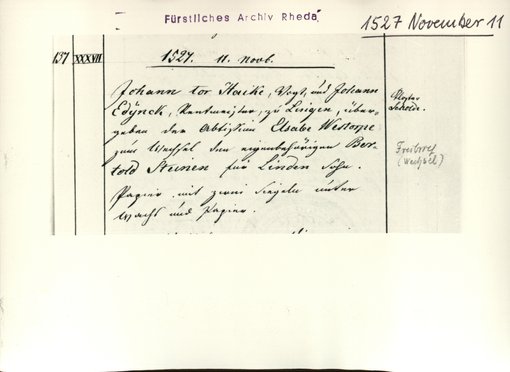 Fürstliches Archiv Rheda
1527 November 11
137 XXXVII
1527. 11. Novb.
Johann tor Hake, Vogt, und Johann
Edynck, Rentmeister, zu Lingen, über-
geben der Abtissin Elsabe
zum Wechsel den eigenbehörigen Ber-
told Steinen für Linden Sohn.
Papier mit zwei Siegeln unter
Wachs und Papier.
Kloster
Freibrief
(Wechsel)